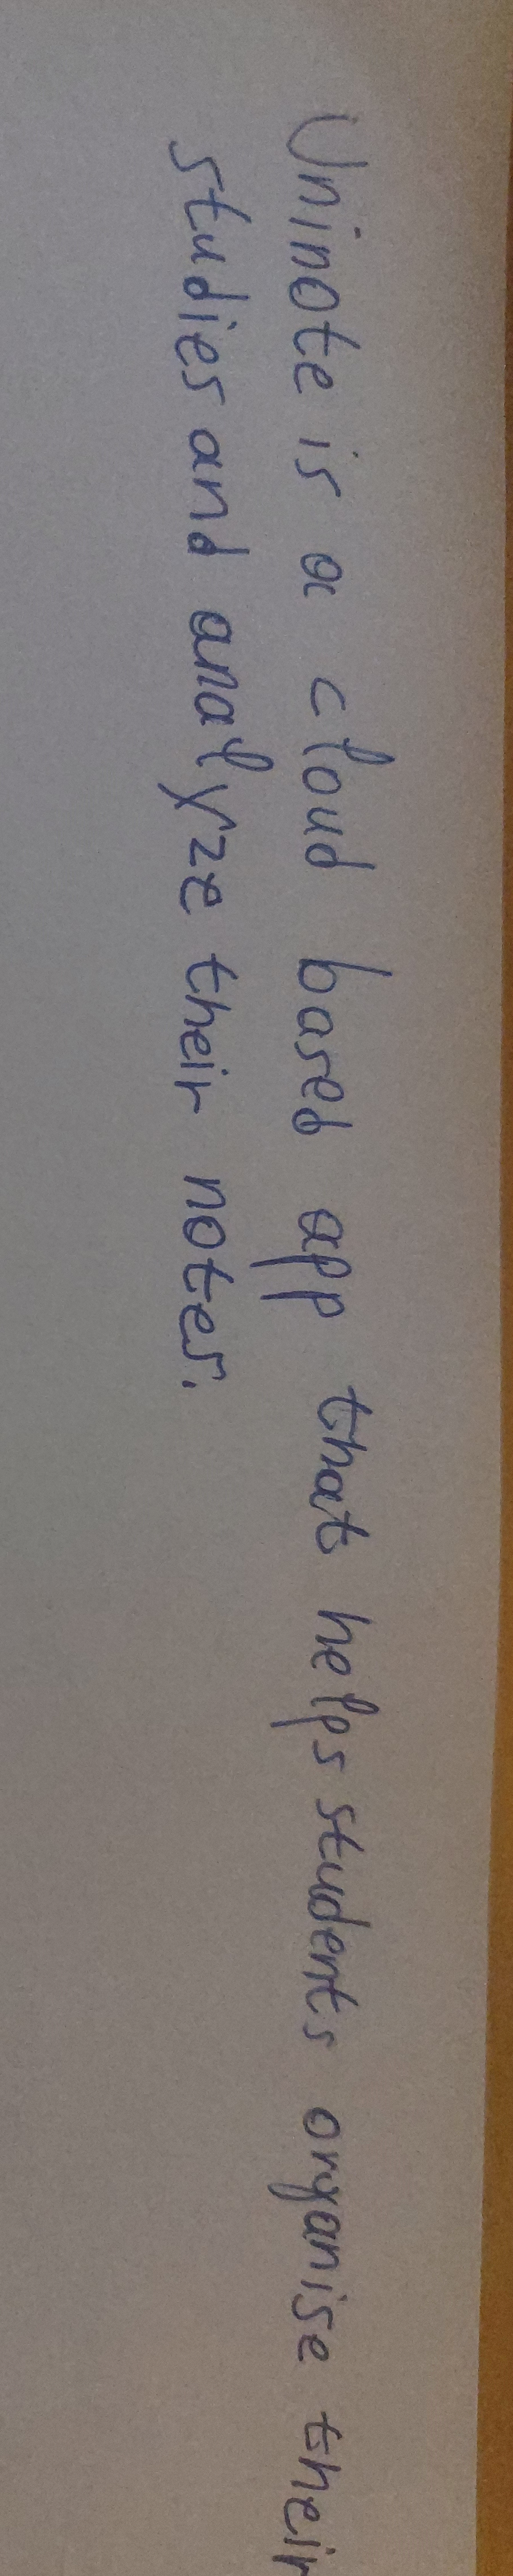 Uninote is a cloud based app that helps students organise their
studies and analyze their notes.